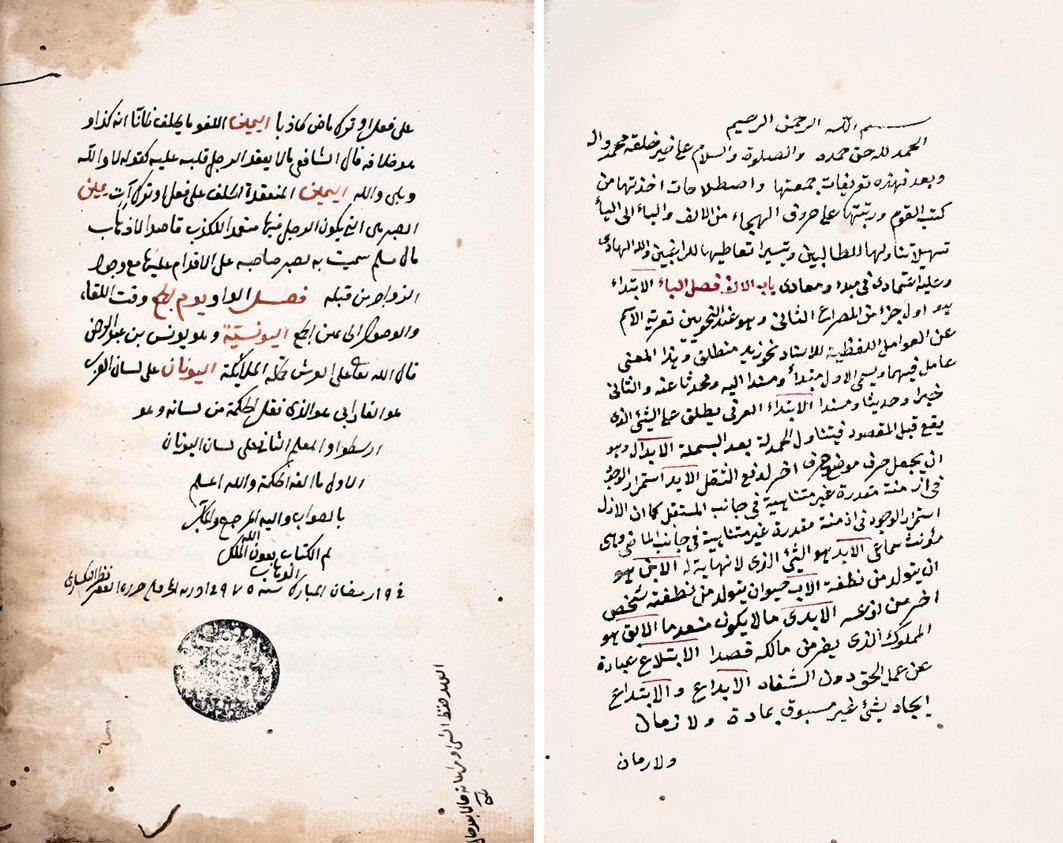 بسم الله الرحمن الرحيم
الحمد لله حق حمده والصلوة والسلام على خير خلقه محمد واله
وبعد فهذه تعريفات جمعتها واصطلاحات اخذتها من
كتب القوم ورتبتها على حروف الهجاء من الالف والباء الى الياء
تسهيلا تناولها للطالبين وتيسيرا تعاطيها للراغبين والله الهادى
وعليه اعتمادى فى مبداء ومعادى باب الالف فصل الباء الابتداء
هو اول جزء من المصراع الثانى وهو عند النحويين تعرية الاسم
عن العوامل اللفظية للاسناد نحو زيد منطلق وهذا المعنى
عامل فيهما ويسمى الاول مبتدأ ومسندا اليه ومحدثا عنه والثانى
خبرا وحديثا ومسندا الابتداء العرفى يطلق على الشئ الذى
يقع قبل المقصود فيتناول الحمدلة بعد البسملة الابدال وهو
ان يجعل حرف موضع حرف اخر لدفع الثقل الابد استمرار الوجود
فى ازمنة مقدرة غير متناهية فى جانب المستقبل كما ان الازل
استمرار الوجود فى ازمنة مقدرة غير متناهية فى جانب الماضى وهى
مؤنث سماعى الابد هو الشئ الذى لا نهاية له الابن هو
ان يتولد من نطفة الاب حيوان يتولد من نطفته شخص
اخر من نوعه الابدى ما لا يكون منعدما الابق هو
المملوك الذى يفر من مالكه قصدا الابتلاع عبارة
عن عمل الحق دون الشفاه الابداع والابتداع
ايجاد شئ غير مسبوق بمادة ولا زمان
ولا زمان
على فعل او ترك ماض كاذبا اليمين اللغو ما يحلف ظانا انه كذا و
هو خلافه قال الشافعى ما لا يعقد الرجل قلبه عليه كقوله لا والله
وبلى والله اليمين المنعقدة الحلف على فعل او ترك آت يمين
الصبر هى التى يكون الرجل فيها متعمدا للكذب قاصدا لاذهاب
مال مسلم سميت به لصبر صاحبه على الاقدام عليها مع وجود
الزواجر من قبله فصل الواو يوم الجمع وقت اللقاء
والوصول الى عين الجمع اليونسية وهو يونس بن عبد الرحمن
قال الله تعالى على العرش تحمله الملائكة اليونان على لسان العرب
هو الفارابى هو الذى نقل الحكمة من لسانه وهو
ارسطو او المعلم الثانى على لسان اليونان
الاول ما الفه الحكمة والله اعلم
بالصواب واليه المرجع والمآب
تم الكتاب بعون الله الملك
الوهاب
رمضان المبارك سنه